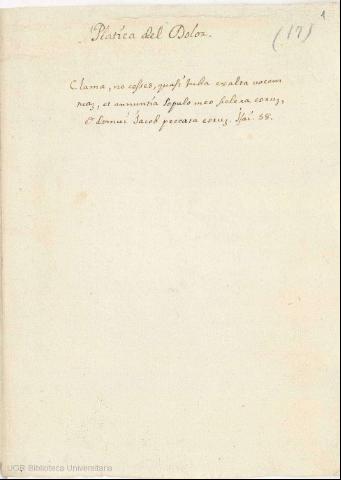 1
Platica del Dolor.
(17)
Clama, ne cesses, quasi tuba exalta vocem
tuam, et annuntia Populo meo scelera eorum,
& Domui Jacob peccata eorum. Isai. 58.
UGR Biblioteca Universitaria